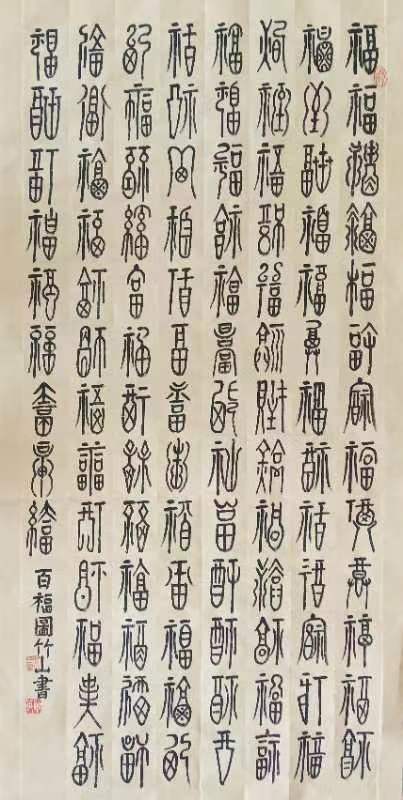 福福福福福福福福福福福福福
福福福福福福福福福福福福福
福福福福福福福福福福福福福
福福福福福福福福福福福福福
福福福福福福福福福福福福福
福福福福福福福福福福福福福
福福福福福福福福福福福福福
福福福福福福福福福 百福圖竹山書